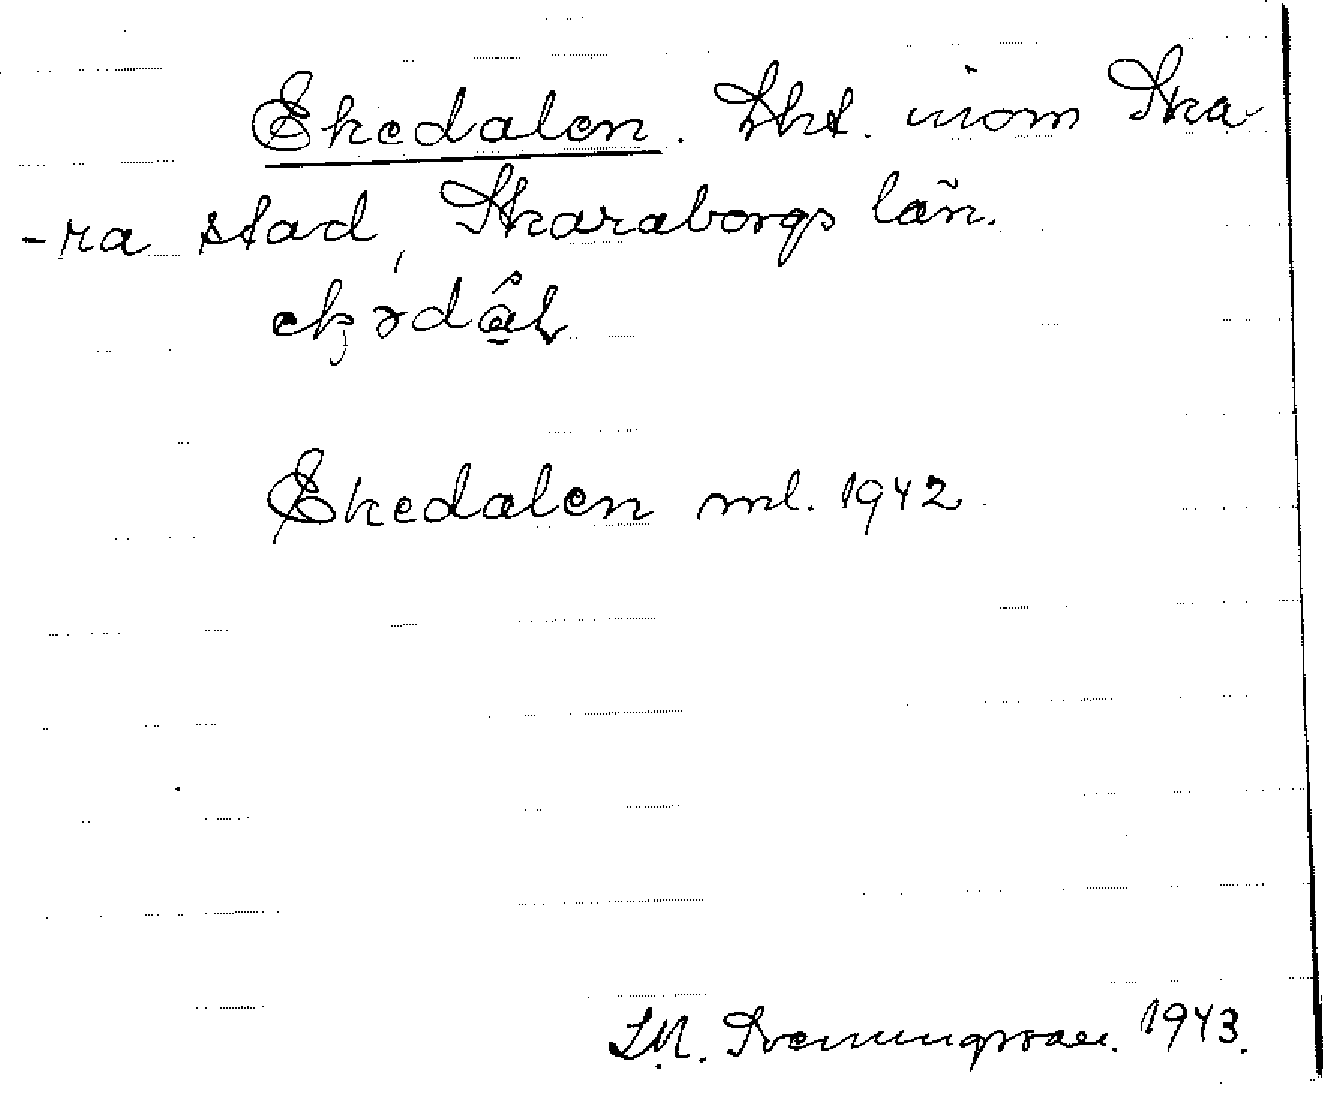 Ekedalen. Lht. inom Ska
-ra stad, Skaraborgs län.
Ekedalen ml. 1942
S.M. Svenningsson. 1943.